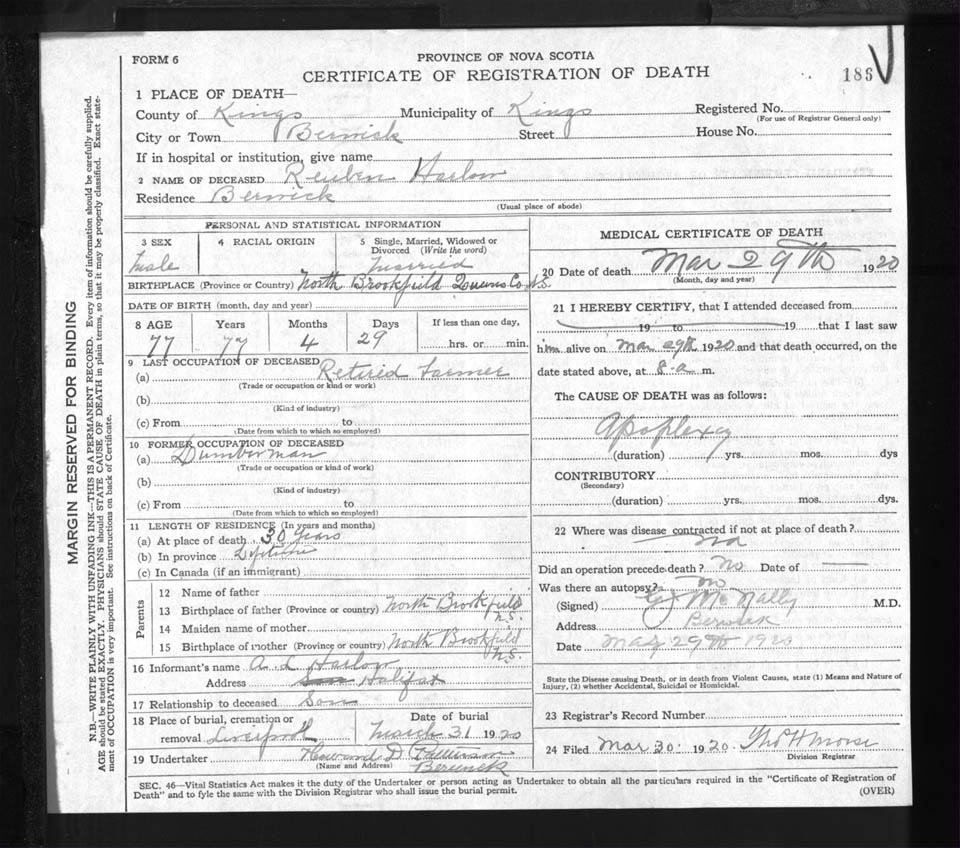 FORM 6
PROVINCE OF NOVA SCOTIA
CERTIFICATE OF REGISTRATION OF DEATH
185
1 PLACE OF DEATH—
County of Kings Municipality of Kings Registered No.
(For use of Registrar General only)
City or Town Berwick Street House No.
If in hospital or institution, give name
2 NAME OF DECEASED Reuben Harlow
Residence Berwick
(Usual place of abode)
PERSONAL AND STATISTICAL INFORMATION
3 SEX 4 RACIAL ORIGIN 5 Single, Married, Widowed or Divorced (Write the word)
Male Married
BIRTHPLACE (Province or Country) North Brookfield Queens Co. N.S.
DATE OF BIRTH (month, day and year)
8 AGE Years Months Days If less than one day,
77 77 4 29 hrs. or min.
9 LAST OCCUPATION OF DECEASED
(a) Retired Farmer
(Trade or occupation or kind or work)
(b)
(Kind of industry)
(c) From to
(Date from which to which so employed)
10 FORMER OCCUPATION OF DECEASED
(a) Lumberman
(Trade or occupation or kind of work)
(b)
(Kind of industry)
(c) From to
(Date from which to which so employed)
11 LENGTH OF RESIDENCE (In years and months)
(a) At place of death 30 years
(b) In province Lifetime
(c) In Canada (if an immigrant)
Parents
12 Name of father
13 Birthplace of father (Province or country) North Brookfield N.S.
14 Maiden name of mother
15 Birthplace of mother (Province or country) North Brookfield N.S.
16 Informant's name A. L. Harlow
Address Son Halifax
17 Relationship to deceased Son
18 Place of burial, cremation or removal Liverpool Date of burial March 31 1920
19 Undertaker Howard D
(Name and Address) Berwick
MEDICAL CERTIFICATE OF DEATH
20 Date of death Mar 29th 1920
(Month, day and year)
21 I HEREBY CERTIFY, that I attended deceased from
19 to 19 that I last saw
him alive on Mar 29th 1920 and that death occurred, on the
date stated above, at 8 a m.
The CAUSE OF DEATH was as follows:
Apoplexy
(duration) yrs. mos. dys
CONTRIBUTORY
(Secondary)
(duration) yrs. mos. dys.
22 Where was disease contracted if not at place of death?
no
Did an operation precede death? No Date of —
Was there an autopsy? no
(Signed) McNally M.D.
Address Berwick
Date Mar 29th 1920
State the Disease causing Death, or in death from Violent Causes, state (1) Means and Nature of
Injury, (2) whether Accidental, Suicidal or Homicidal.
23 Registrar's Record Number
24 Filed Mar 30 1920 Thos H Morse
Division Registrar
SEC. 46—Vital Statistics Act makes it the duty of the Undertaker or person acting as Undertaker to obtain all the particulars required in the "Certificate of Registration of
Death" and to fyle the same with the Division Registrar who shall issue the burial permit.
(OVER)
MARGIN RESERVED FOR BINDING
N.B.—WRITE PLAINLY WITH UNFADING INK—THIS IS A PERMANENT RECORD. Every item of information should be carefully supplied.
AGE should be stated EXACTLY. PHYSICIANS should STATE CAUSE OF DEATH in plain terms, so that it may be properly classified. Exact state-
ment of OCCUPATION is very important. See instructions on back of Certificate.